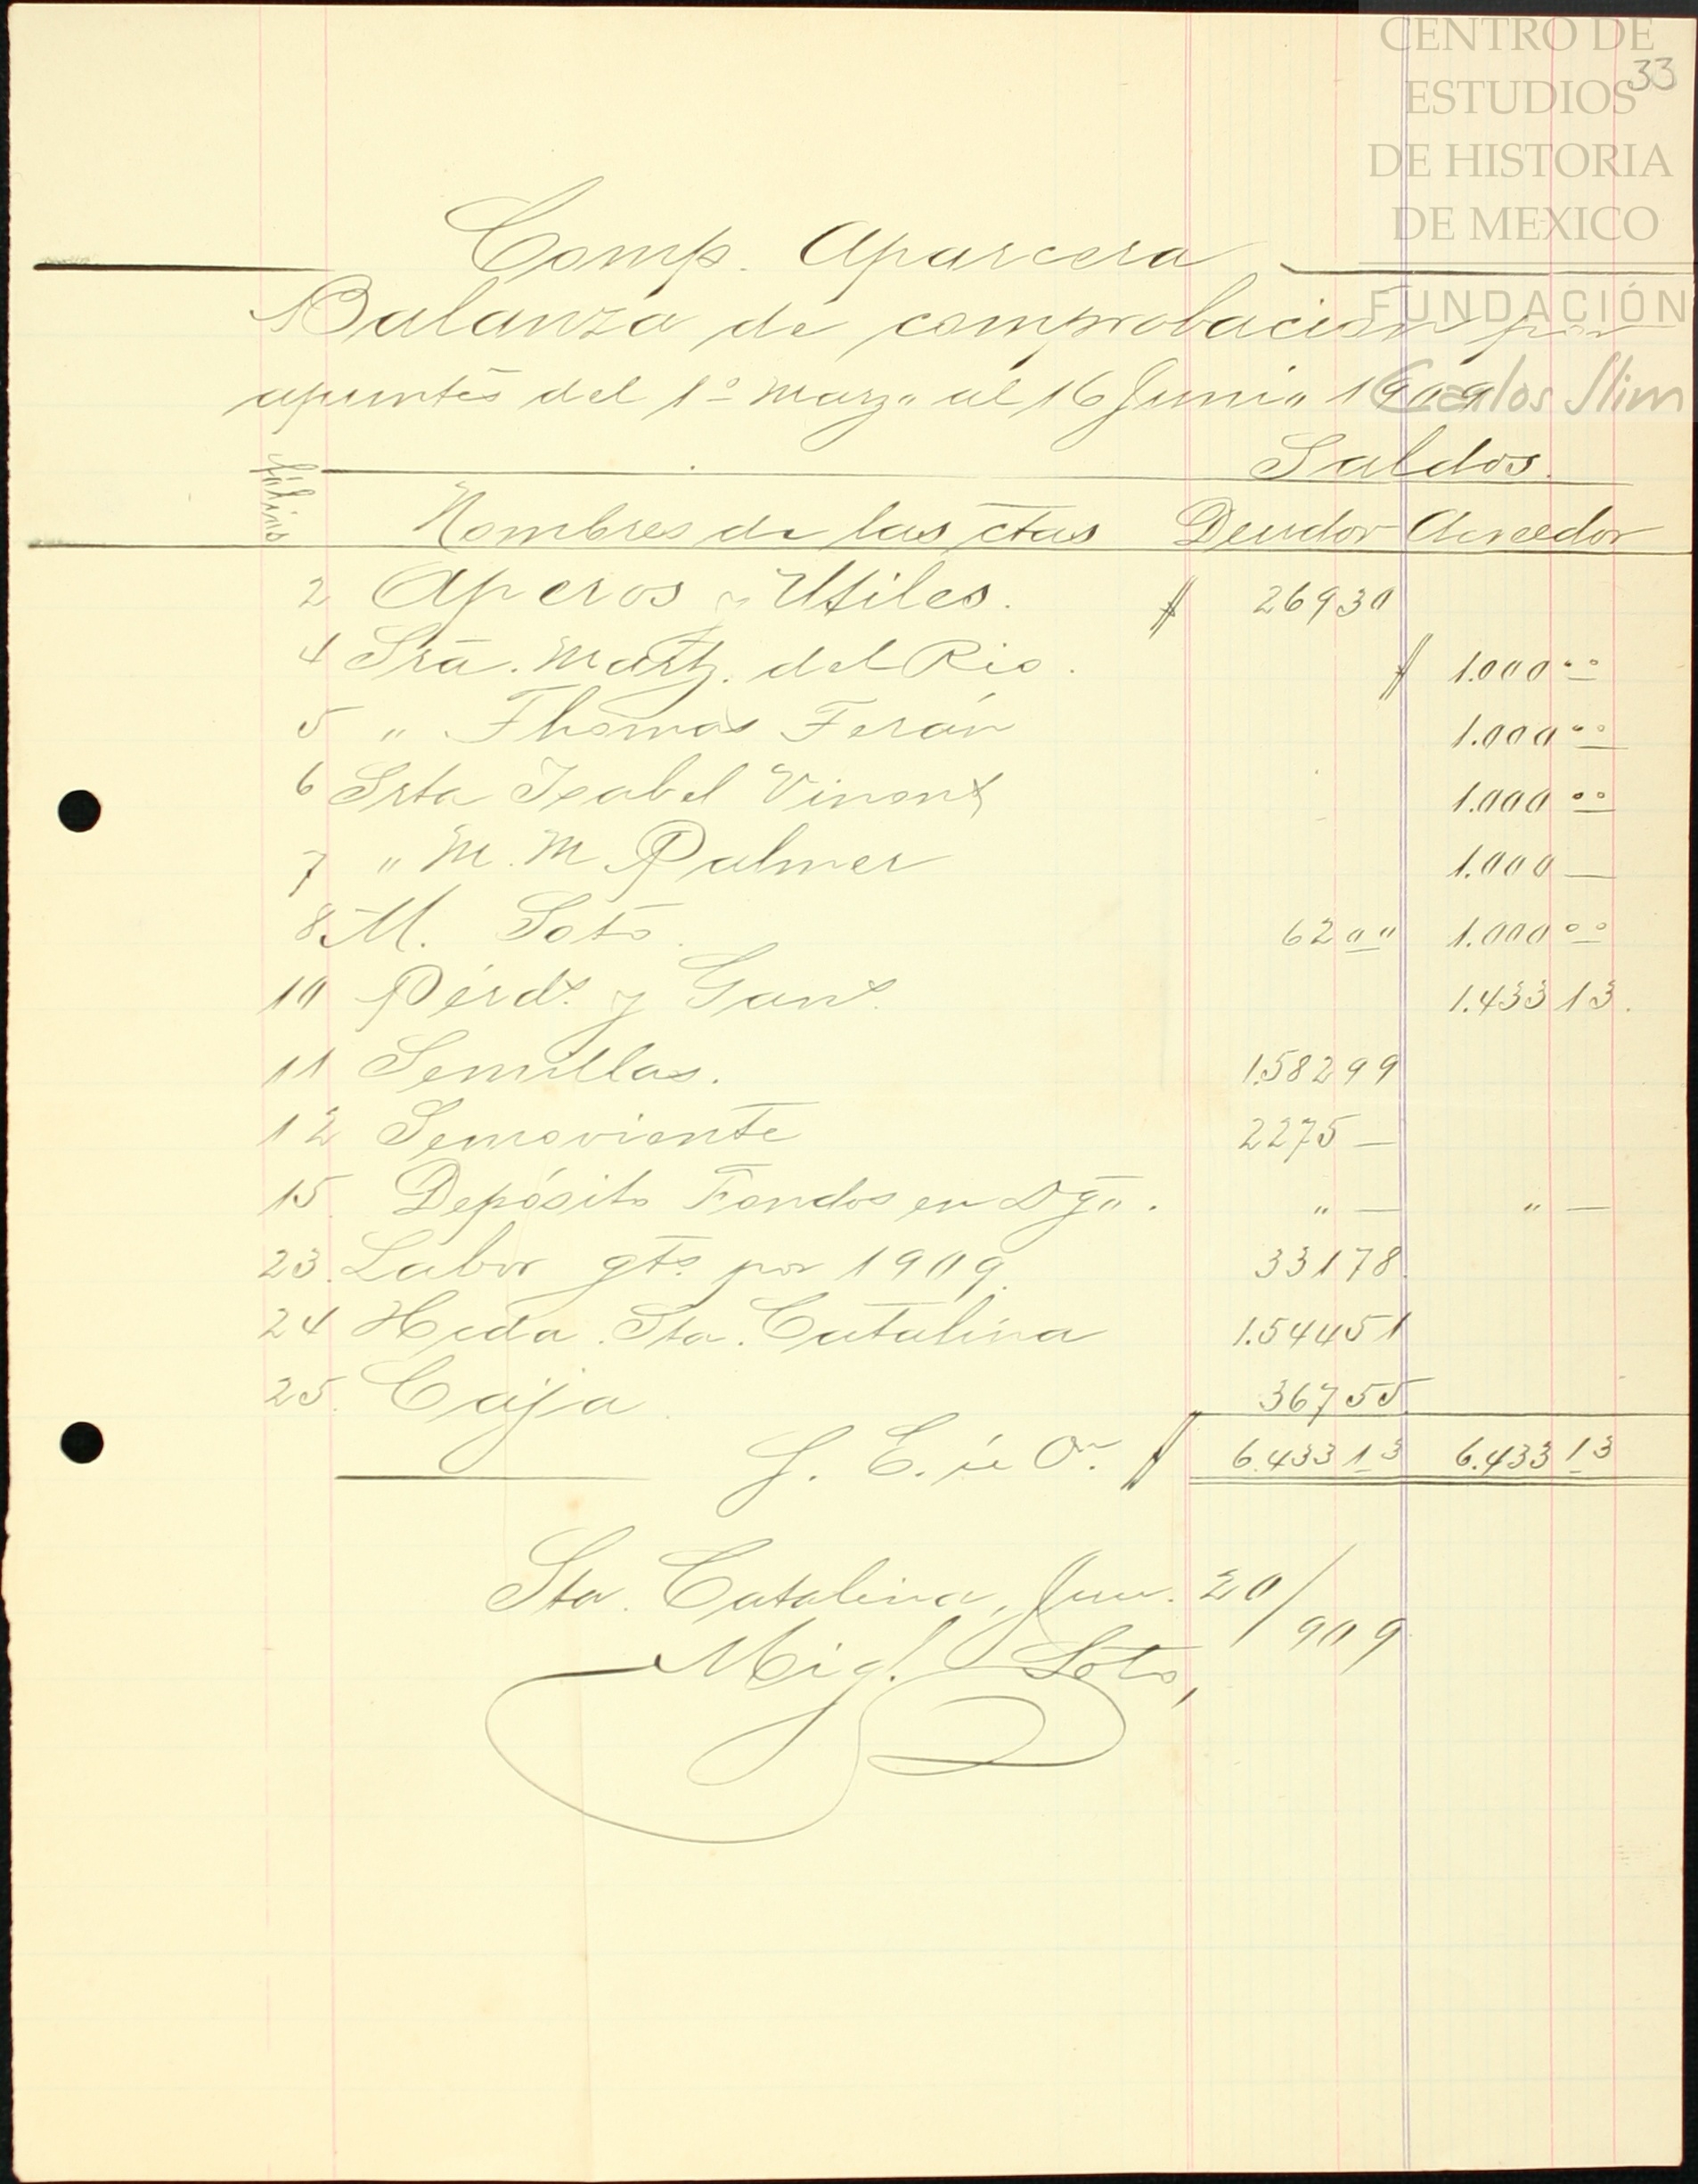 CENTRO DE
ESTUDIOS
DE HISTORIA
DE MEXICO
FUNDACIÓN
Carlos Slim
33
Comp. Aparcera
Balanza de comprobación por
apuntes del 1º Marzo al 16 Junio 1909
Saldos.
Fólios Nombres de las ctas Deudor Acreedor
2 Aperos y Utiles. $ 269 30
4 Sra. Martz. del Rio. $ 1.000 00
5 " Thomas Terán 1.000 00
6 Srta Isabel Vinent 1.000 00
7 " M. M. Palmer 1.000 —
8 M. Soto. 62 00 1.000 00
10 Pérds. y Gans. 1.433 13.
11 Semillas. 1.582 99
12 Semoviente 2275 —
15. Depósito Fondos en Dgo. " — " —
23. Labor gts. por 1909. 331 78.
24 Hcda. Sta. Catalina 1.544 51
25. Caja. 367 55
S. E. ú O. $ 6.433 13 6.433 13
Sta. Catalina, Jun. 20/909
Migl. Soto,